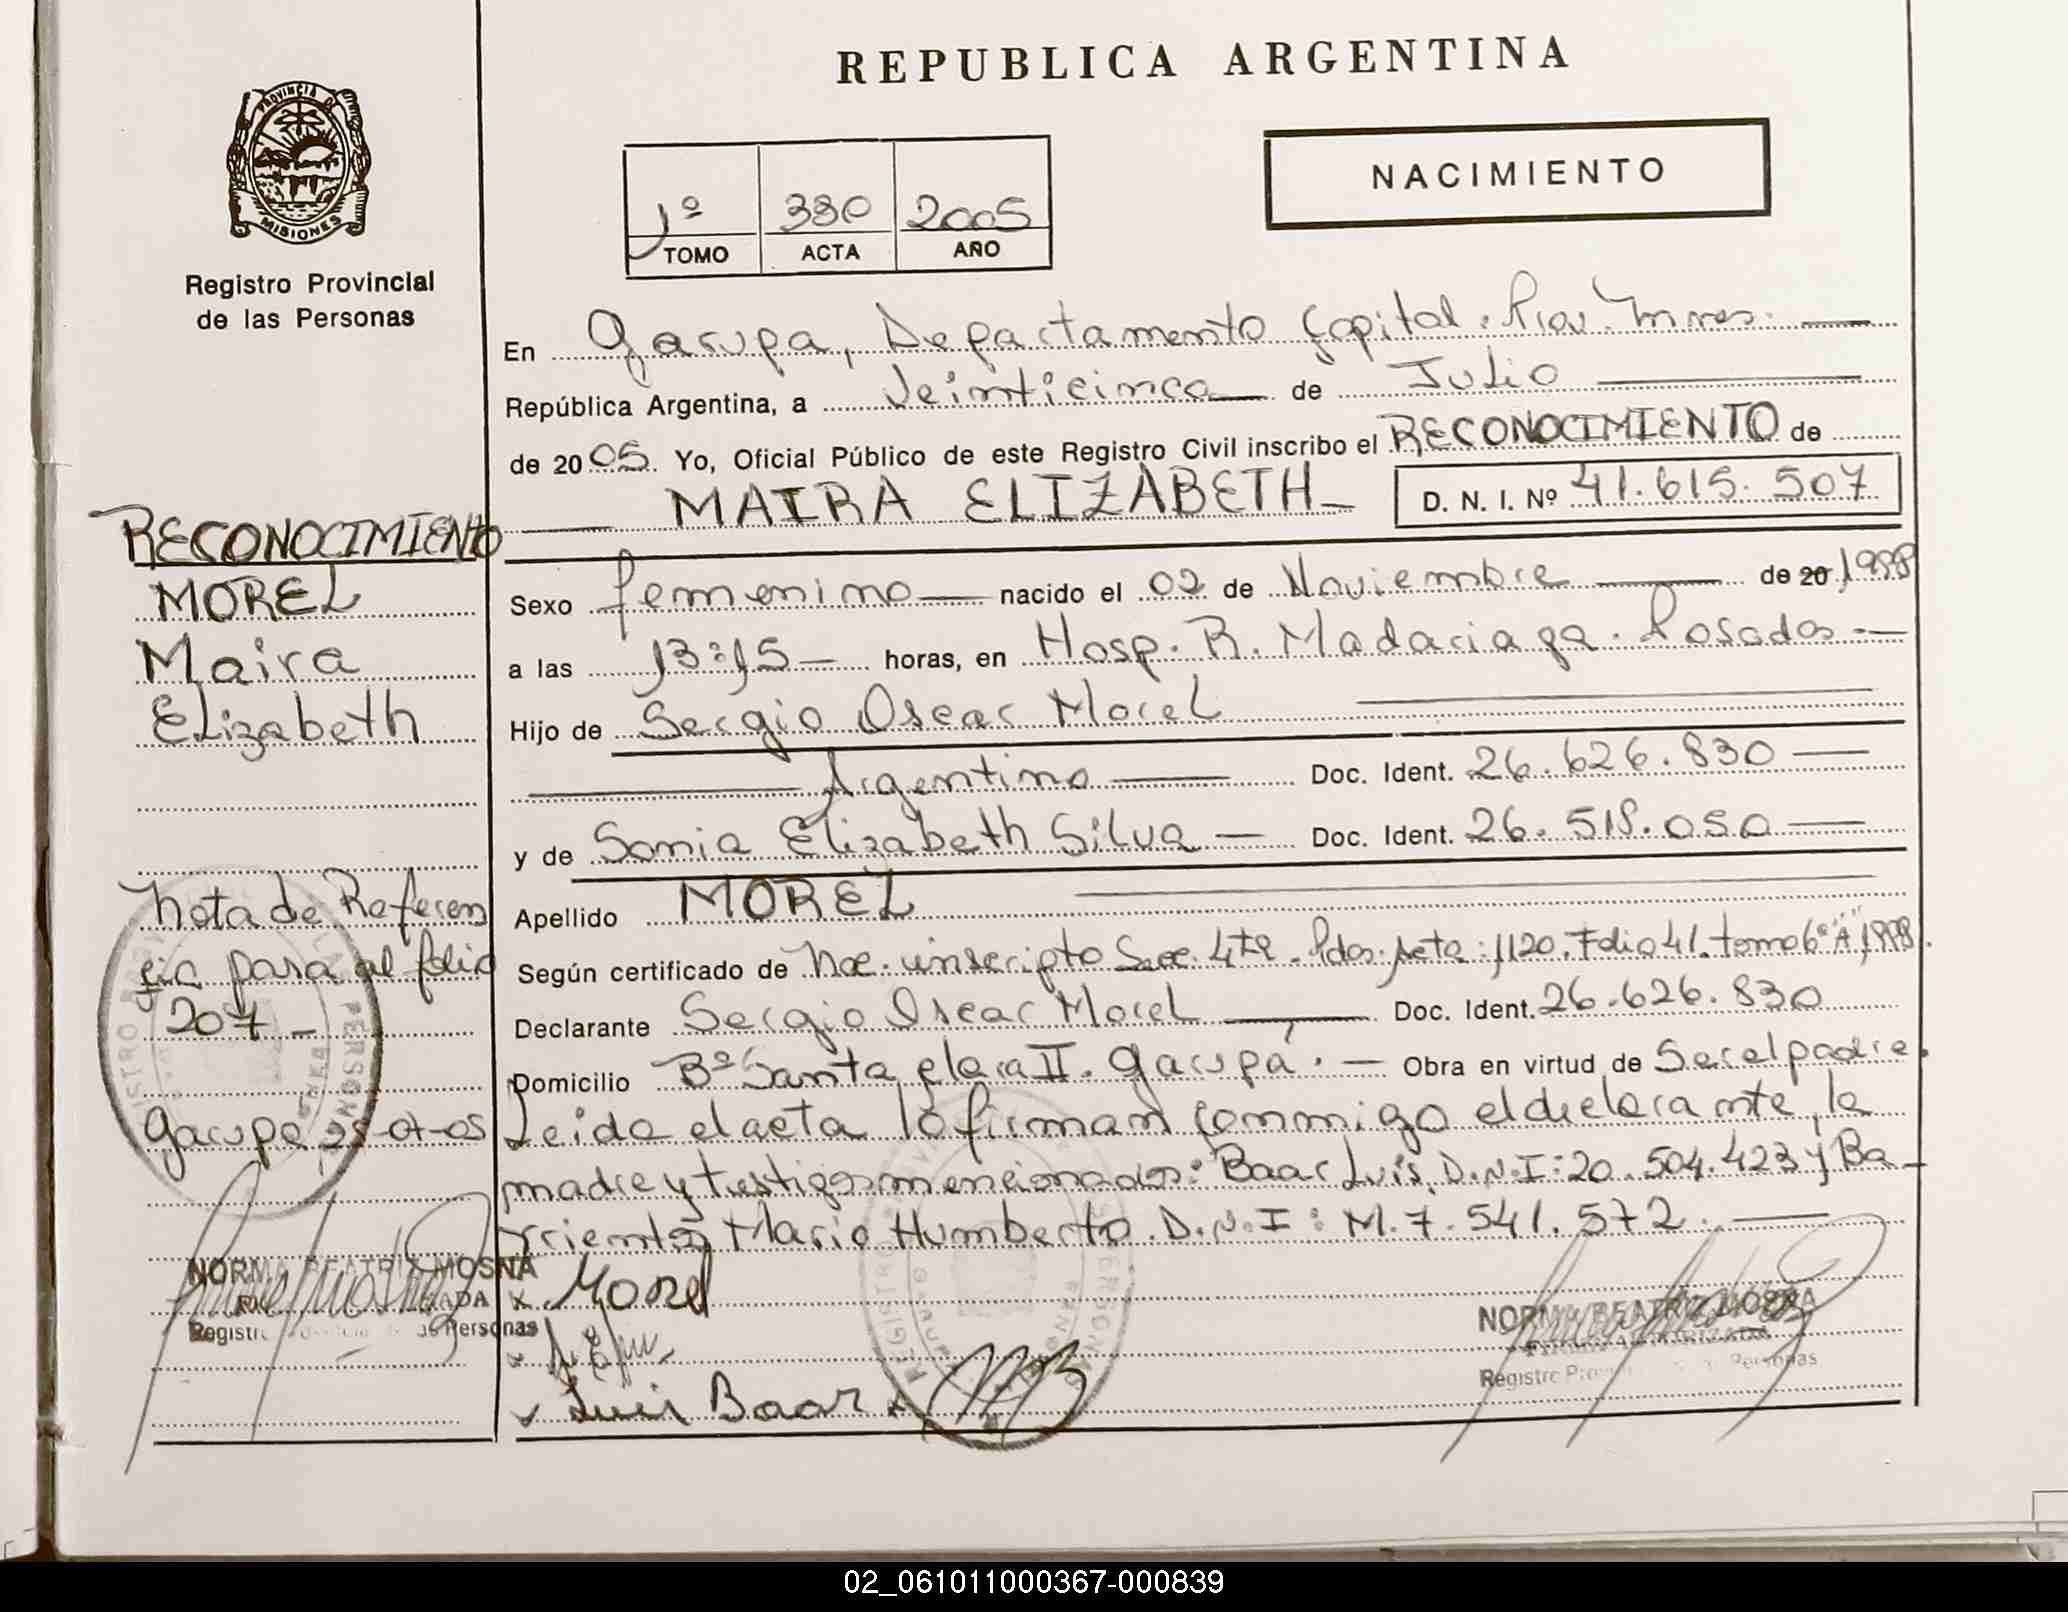 REPUBLICA ARGENTINA
PROVINCIA DE
MISIONES
Registro Provincial
de las Personas
NACIMIENTO
1º 380 2005
TOMO ACTA AÑO
En Garupa, Departamento Capital. Pcia. Mnes.
República Argentina, a Veinticinco de Julio
de 2005. Yo, Oficial Público de este Registro Civil inscribo el RECONOCIMIENTO de
MAIRA ELIZABETH D. N. I. Nº 41.615.507
Sexo femenino nacido el 02 de Noviembre de 20 1998
a las 13:15 horas, en Hosp. R. Madariaga. Posadas
Hijo de Sergio Oscar Morel
Argentino Doc. Ident. 26.626.830
y de Sonia Elizabeth Silva Doc. Ident. 26.518.050
Apellido MOREL
Según certificado de Nac. inscripto Secc. 4ta. Pdas. Acta: 1120. Folio 41. tomo 6º "A" 1998.
Declarante Sergio Oscar Morel Doc. Ident. 26.626.830
Domicilio Bº Santa Clara II. Garupá. Obra en virtud de Ser el padre.
Leida el acta lo firman conmigo el declarante, la
madre y testigos mencionados: Baar Luis, D.N.I: 20.504.423 y Ba-
rrientos Mario Humberto. D.N.I: M. 7.541.572.
Morel
Luis Baar
NORMA BEATRIZ MOSNA
FIRMA AUTORIZADA
Registro Provincial de las Personas
RECONOCIMIENTO
MOREL
Maira
Elizabeth
Nota de Referen
cia para al folio
207
Garupa 25-07-05
NORMA BEATRIZ MOSNA
Registro Provincial de las Personas
02_061011000367-000839